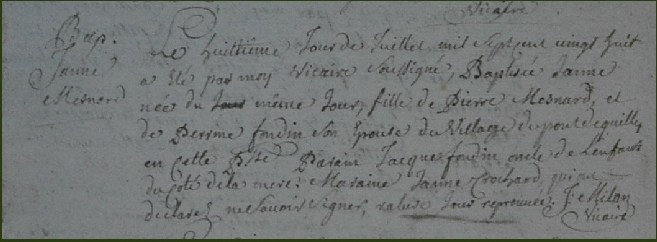 Vicaire
Bap.
Janne
Mesnord
Le huittième Jour de Juillet mil Sept cent vingt huit
a Eté par moy Vicaire Soussigné, Baptisée Janne
née du Jour même Jour, fille de Pierre Mesnard, et
de Perrine fordin Son Epouse du Village du pont de quille,
en Cette Parain Jacque fordin oncle de L'enfant
du Coté de la mere: Maraine Janne Crochard, qui ont
declarez ne Savoir Signer, rature Jour reprouvée: J. Mélan
Vicaire